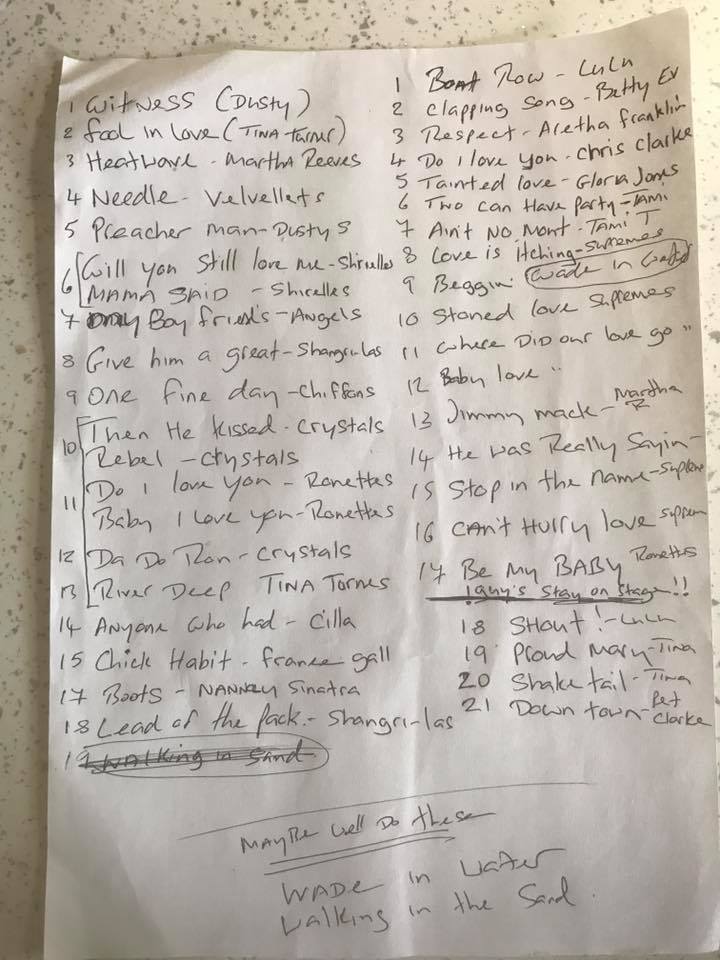 1 Witness (Dusty)
2 fool in love (TINA Turner)
3 Heatwave - Martha Reeves
4 Needle - Velvellets
5 Preacher man - Dusty S
6 Will you still love me - Shirelles
MAMA SAID - Shirelles
7 Boy friend's - Angels
8 Give him a great - Shangri-las
9 One fine day - Chiffons
10 Then He kissed - Crystals
Rebel - Crystals
11 Do I love you - Ronettes
Baby I love you - Ronettes
12 Da Do Ron - Crystals
13 River Deep TINA Tornes
14 Anyone who had - Cilla
15 Chick Habit - france gall
17 Boots - NANNCY Sinatra
18 Lead of the pack - Shangri-las
19 Walking in Sand
1 Boat Row - LuLu
2 Clapping Song - Betty Ev
3 Respect - Aretha franklin
4 Do I love you - Chris Clarke
5 Tainted love - Gloria Jones
6 Two can Have Party - Tami
7 Ain't No Mont - Tami T
8 Love is Itching - Supremes
9 Beggin Wade in Water
10 Stoned love Supremes
11 Where Did our love go "
12 Baby love "
13 Jimmy mack - Martha R
14 He was Really Sayin -
15 Stop in the name - Supreme
16 CAn't Hurry love Suprem
17 Be My BABY Ronettes
!guy's Stay on Stage!!
18 SHout! - LuLu
19 Proud Mary - Tina
20 Shake tail - Tina
21 Down town - Pet Clarke
MAYBe well Do these
WADe in Water
Walking in the Sand.